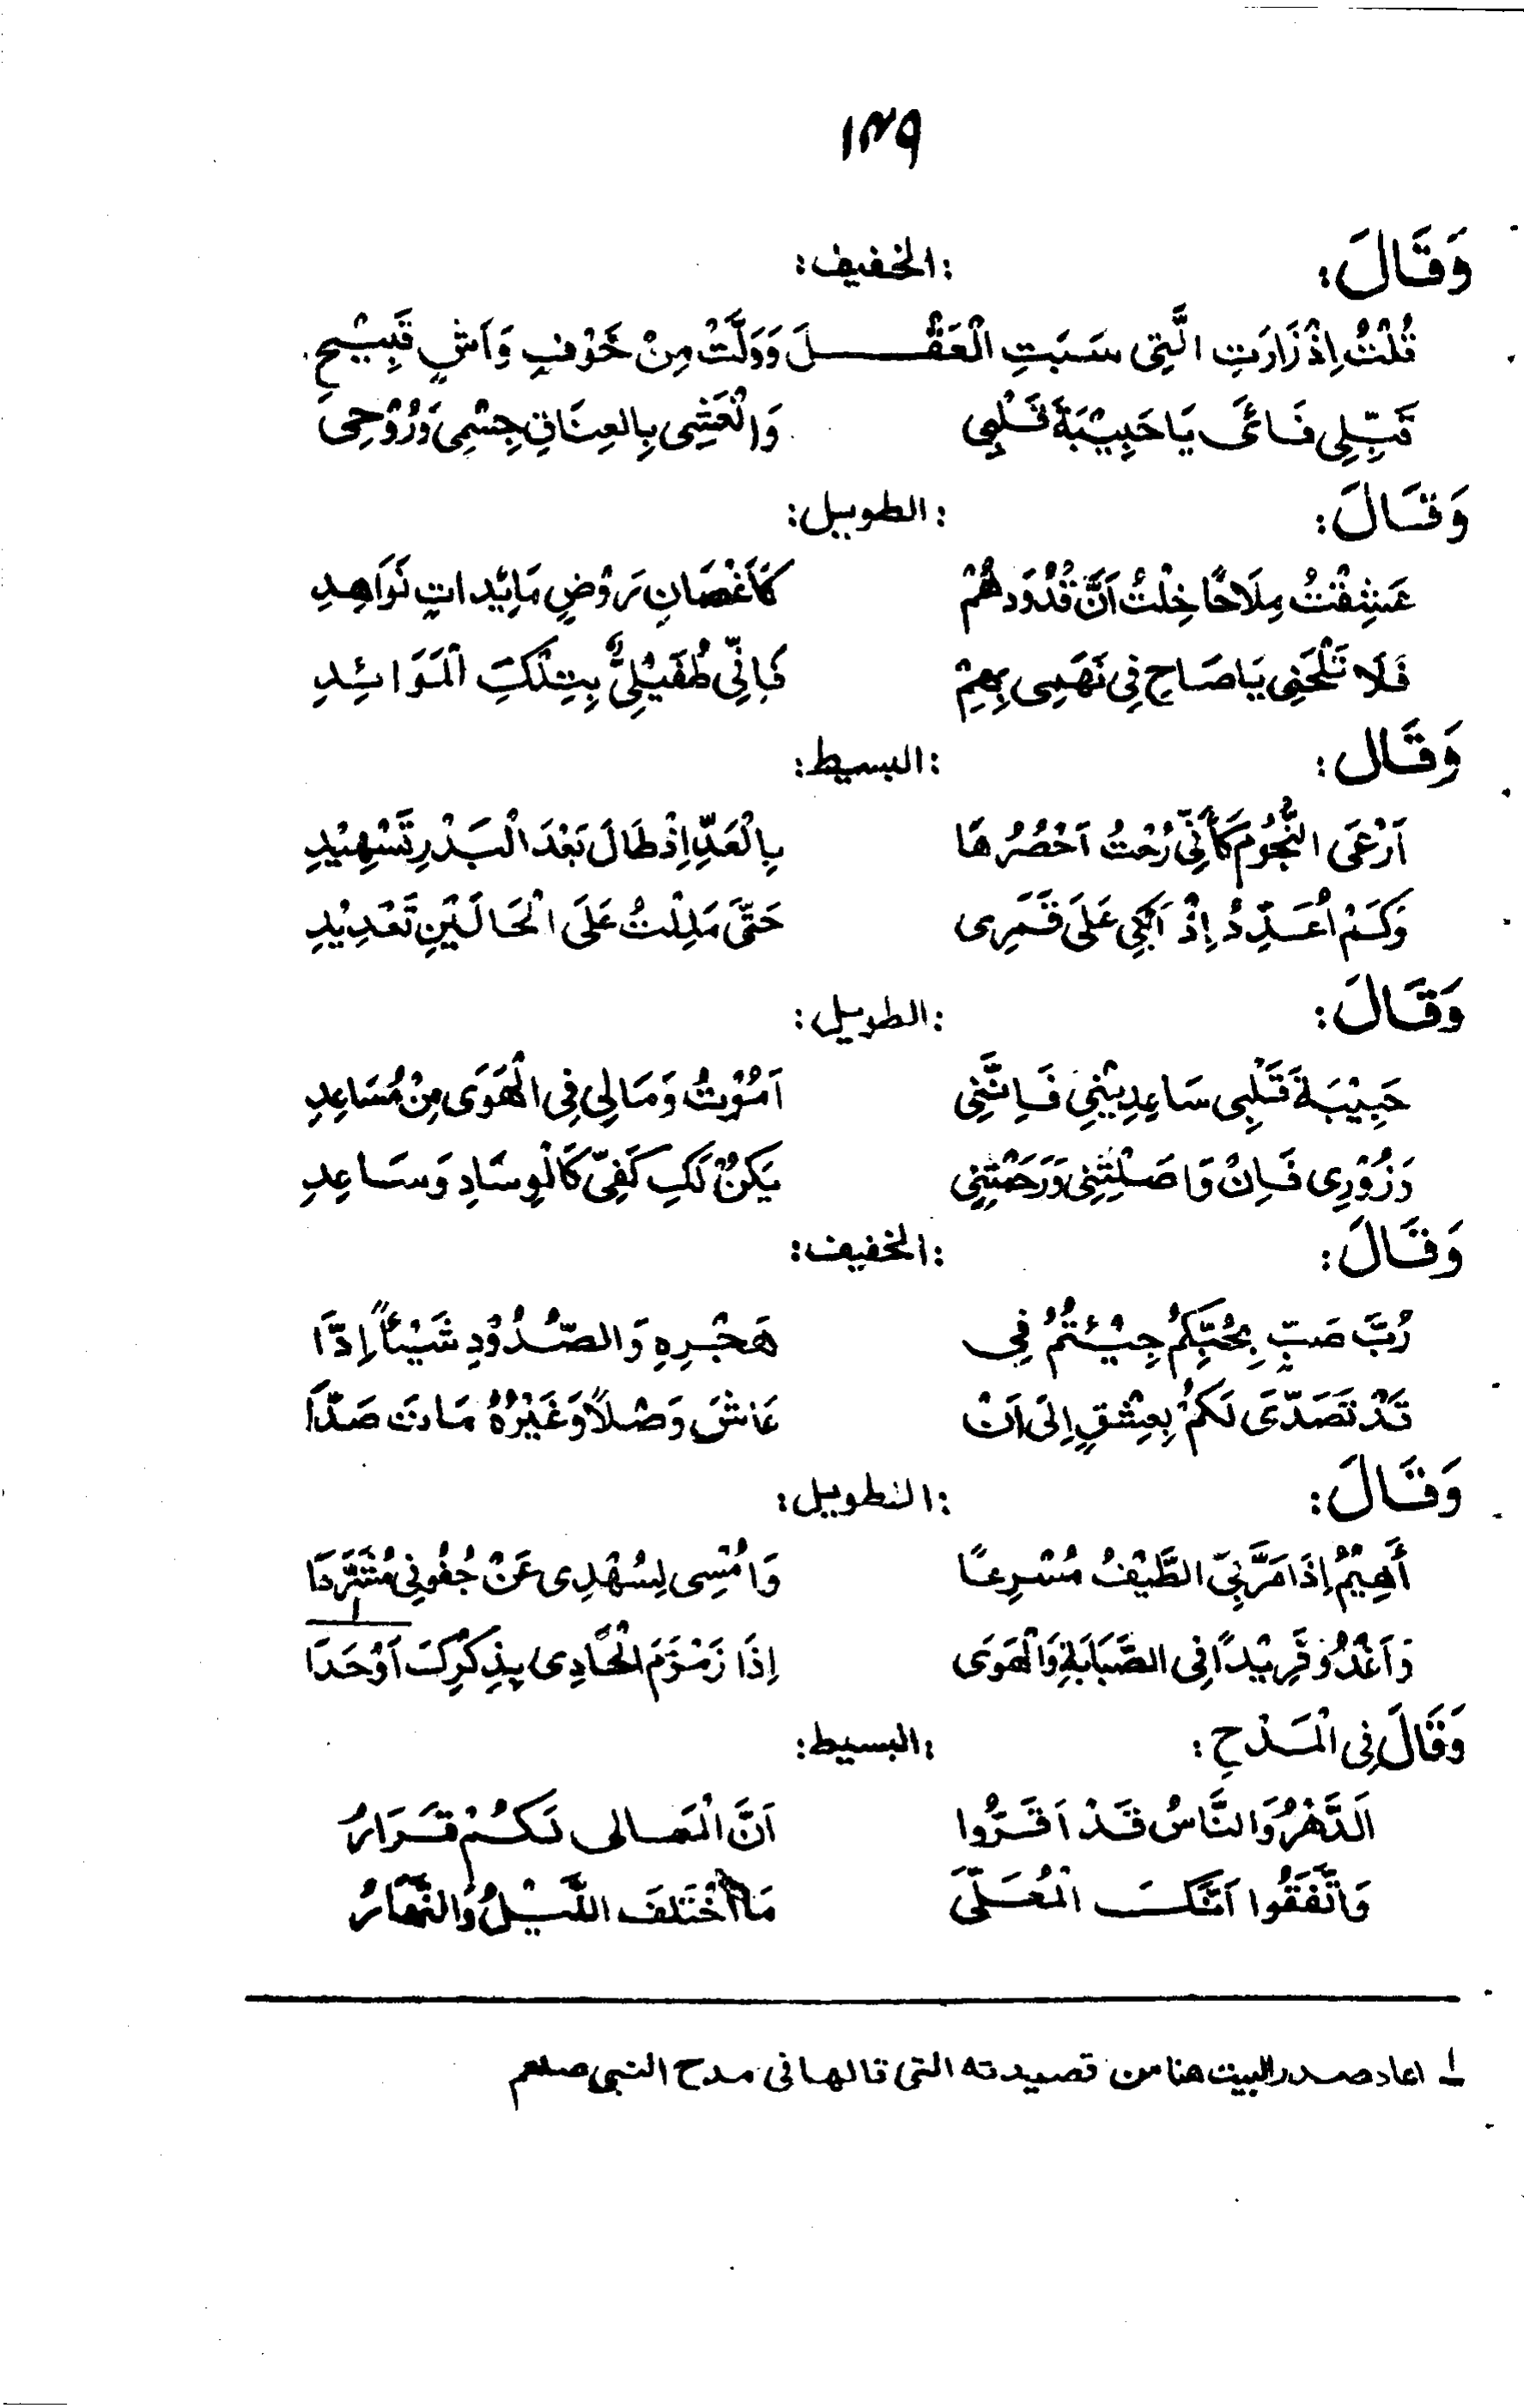 ١٣٩
وَقَالَ: :الخفيف:
قُلْتُ اِذْ زَارَتِ الَّتِى سَبَتِ الْعَقْـــلَ وَوَلَّتْ مِنْ خَوْفِ وَاشٍ قَبِيْحِ
قَبِّلِى فَائىَ يَا حَبِيْبَةَ قَلْبِى وَانْعَشِى بِالعِنَاقِ جِسْمِى وَرُوْحِى
وَقَالَ: :الطويل:
عَشِقْتُ مِلَاحًا خِلْتُ اَنَّ قُدُوْدَهُمْ كَاَغْصَانِ رَوْضٍ مَائِداتٍ نَوَاهِدِ
فَلَا تَلْحَنِى يَا صَاحِ فِى نَهَمِى بِهِمْ فَاِنِّى طُفَيْلِىٌّ بِتِلْكَ الْمَوَائِدِ
وَقَال: :البسيط:
اَرْعَى النُّجُوْمَ كَاَنِّى رُحْتُ اَحْصُرُهَا بِالْعَدِّ اِذْ طَالَ بَعْدَ الْبَدْرِ تَسْهِيْدِ
وَكَمْ اُعَدِّدُ اِذْ اَبْكِى عَلَى قَمَرِى حَتَّى مَلِلْتُ عَلَى الْحَالَيْنِ تَعْدِيْدِ
وَقَالَ: :الطويل:
حَبِيْبَةَ قَلْبِى سَاعِدِيْنِى فَاِنَّنِى اَمُوْتُ وَمَالِى فِى الْهَوَى مِنْ مُسَاعِدِ
وَزُوْرِى فَاِنْ وَاصَلْتِنِى وَرَحَمْتِنِى يَكُنْ لَكِ كَفِّى كَالْوِسَادِ وَسَاعِدِ
وَقَالَ: :الخفيف:
رُبَّ صَبٍّ بِحُبِّكُمْ جِيْئتُمُ فِى هَجْرِهِ وَالصُّدُوْدِ شَيْئاً اِدَّا
قَدْ تَصَدَّى لَكُمْ بِعِشْقٍ اِلَى اَنْ عَاشَ وَصْلاً وَغَيْرُهُ مَاتَ صَدَّا
وَقَالَ: :الطويل:
أَهِيْمُ اِذَا مَرَّ بِىَ الطَّيْفُ مُسْرِعًا وَاُمْسِى لِسُهْدِى عَنْ جُفُونِى مُشَرَّدَا ١
وَاَغْدُو فَرِيْداً فِى الصَّبَابَةِ وَالْهَوَى اِذَا زَمْزَمَ الْحَادِى بِذِكْرِكَ اَوْحَدَا
وَقَالَ فِى الْمَدْحِ: :البسيط:
اَلدَّهْرُ وَالنَّاسُ قَدْ اَقَرُّوا اَنَّ الْمَعَالى لَكُمْ قَرَارُ
وَاتَّفَقُوا اَنَّكَ الْمُعَلَّىَ مَا اخْتَلَفَ اللَّيْلُ وَالنَّهَارُ
١ اعاد صدر البيت هنا من قصيدته التى قالها فى مدح النبى صلعم